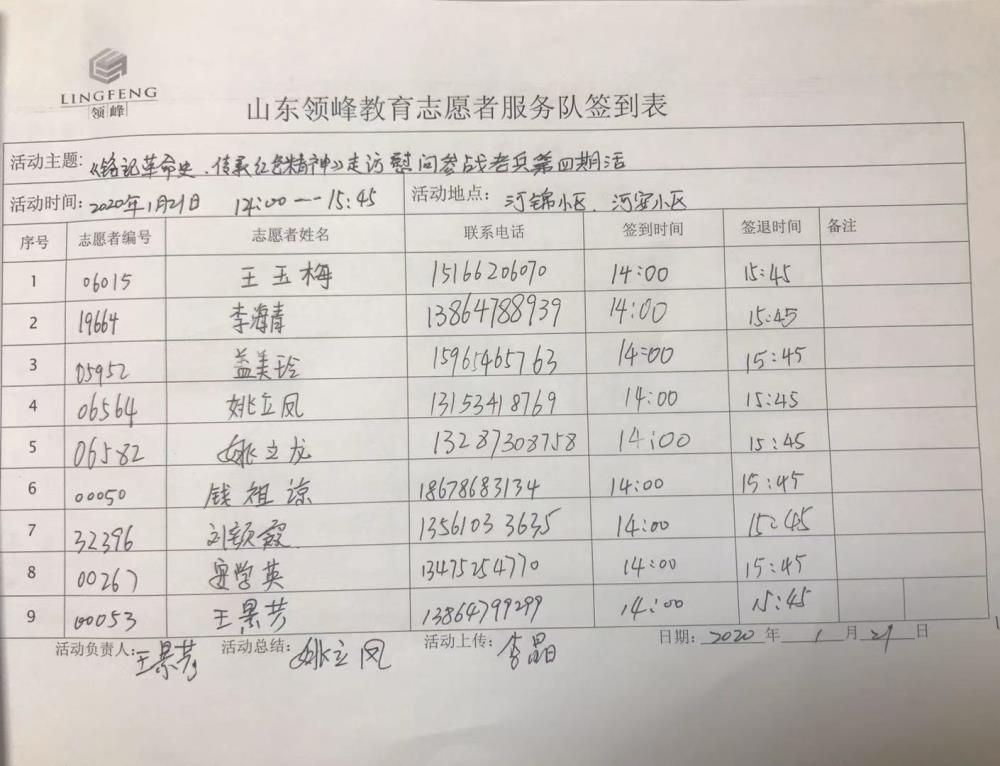 LINGFENG
领峰
山东领峰教育志愿者服务队签到表
活动主题:《铭记革命史、传承红色精神》走访慰问参战老兵第四期活
活动时间: 2020年1月21日 14:00—15:45 活动地点: 河锦小区、河安小区
序号 志愿者编号 志愿者姓名 联系电话 签到时间 签退时间 备注
1 06015 王玉梅 15166206070 14:00 15:45
2 19664 李海青 13864788939 14:00 15:45
3 05952 益美玲 15965465763 14:00 15:45
4 06564 姚立凤 13153418769 14:00 15:45
5 06582 姚立龙 13287308758 14:00 15:45
6 00050 钱祖谅 18678683134 14:00 15:45
7 32396 刘颖霞 13561033635 14:00 15:45
8 00267 学英 13475254770 14:00 15:45
9 00053 王景芳 13864799299 14:00 15:45
活动负责人: 王景芳 活动总结: 姚立凤 活动上传: 李晶 日期: 2020 年 1 月 21 日